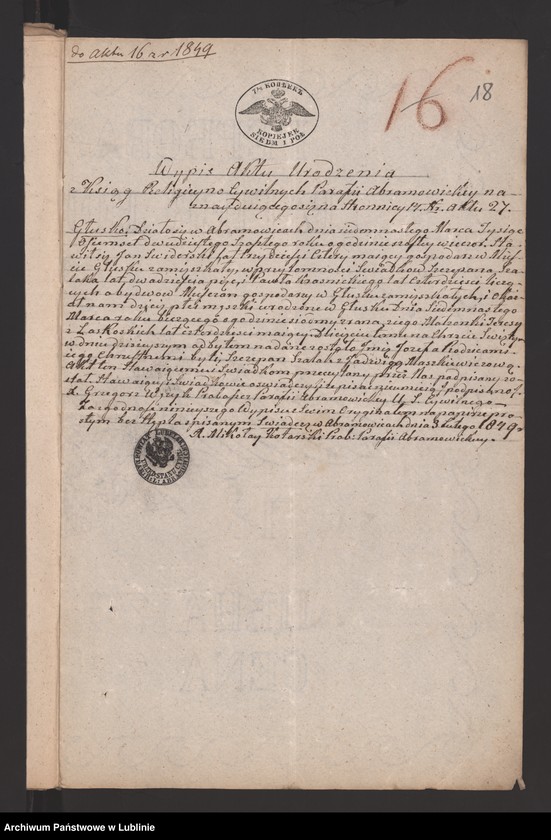 do Aktu 16 z r 1849
16
18
7½ KOPIEEKЪ
KOPIEJEK
SIEDM I PÓŁ
Wypis Aktu Urodzenia
z Ksiąg Religiyno Cywilnych Parafii Abramowickiey na-
znayduiącego się na Stronnicy Nr. Aktu 27.
Głusko, Działo się w Abramowicach dnia siedemnastego Marca Tysiąc
Osiemset dwudziestego roku o godzinie szóstey wieczor. Sta-
wił się Jan Swiderski lat trzydzieści cztery maiący gospodarz w Mieś-
cie Głusku zamieszkały, w przytomności Swiadków Szczepana Sza-
laka lat dwadzieścia pięć, i Pawła lat czterdzieści liczą-
cych obydwóch Mieszczan gospodarzy w Głusku zamieszkałych, i okaz-
ał nam dziecię płci męzkiey urodzone w Głusku dnia siedemnastego
Marca roku bieżącego o godzinie siódmey z rana z jego Małżonki Teresy
z lat czterdzieści maiącey. Dziecięciu temu na Chrzcie Świętym
w dniu dzisieyszym odbytem nadane zostało Imię Józefa Rodzicami
jego Chrzestnemi byli, Szczepan Szalak z Jadwigą Mańkiewiczową
Akt ten Stawaiącemu i Swiadkom przeczytany przez Nas podpisany zo-
stał. Stawaiący i Świadkowie oświadczyli że pisać nieumieią. podpisano
X. Grzegorz Proboszcz Parafii Abramowickiey U. S. Cywilnego
Za zgodność ninieyszego Odpisu z Swim Oryginałem na papierze pro-
stym bez Stępla spisanym Swiadczę w Abramowicach dnia 3 Lutego 1849 r
X. Mikołay Kotarski Prob: Parafii Abramowickiey.
Archiwum Państwowe w Lublinie